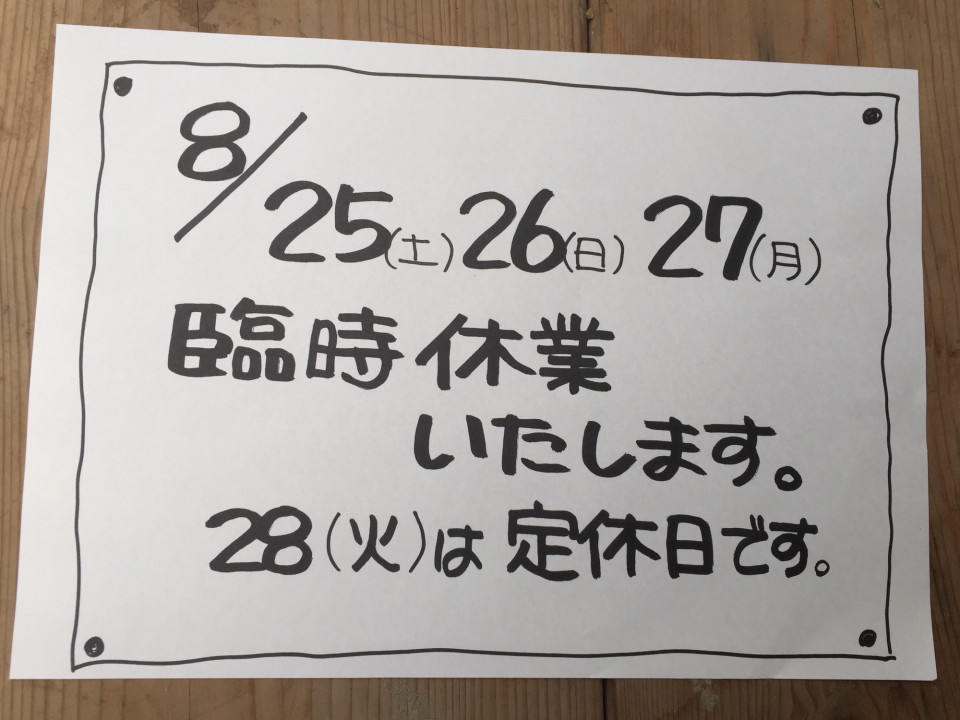 8/25(土)26(日) 27(月)
臨時休業
いたします。
28(火)は定休日です。